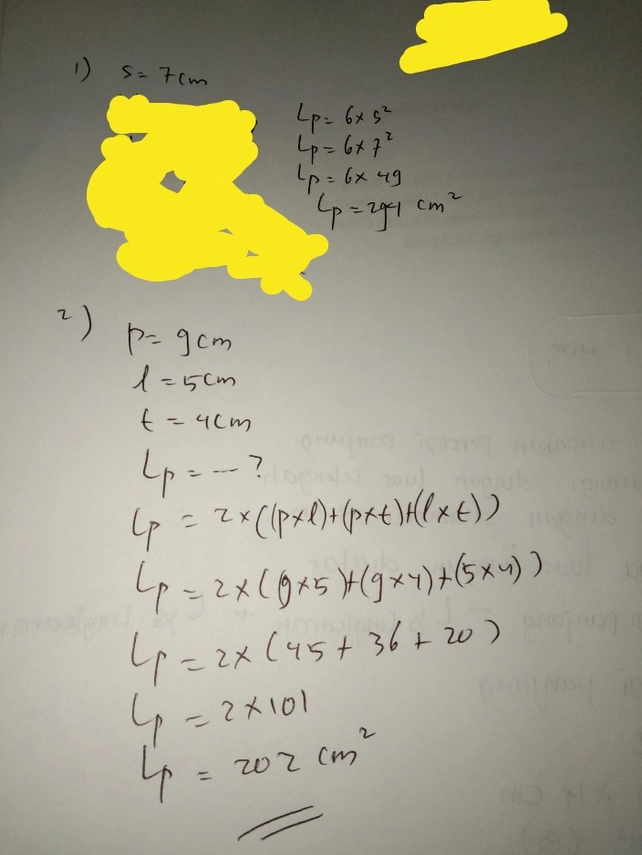 1) s = 7 cm
Lp = 6 x s²
Lp = 6 x 7²
Lp = 6 x 49
Lp = 294 cm²
2)
p = 9 cm
l = 5 cm
t = 4 cm
Lp = --- ?
Lp = 2 x ((p x l) + (p x t) + (l x t))
Lp = 2 x (9 x 5) + (9 x 4) + (5 x 4))
Lp = 2 x (45 + 36 + 20)
Lp = 2 x 101
Lp = 202 cm²